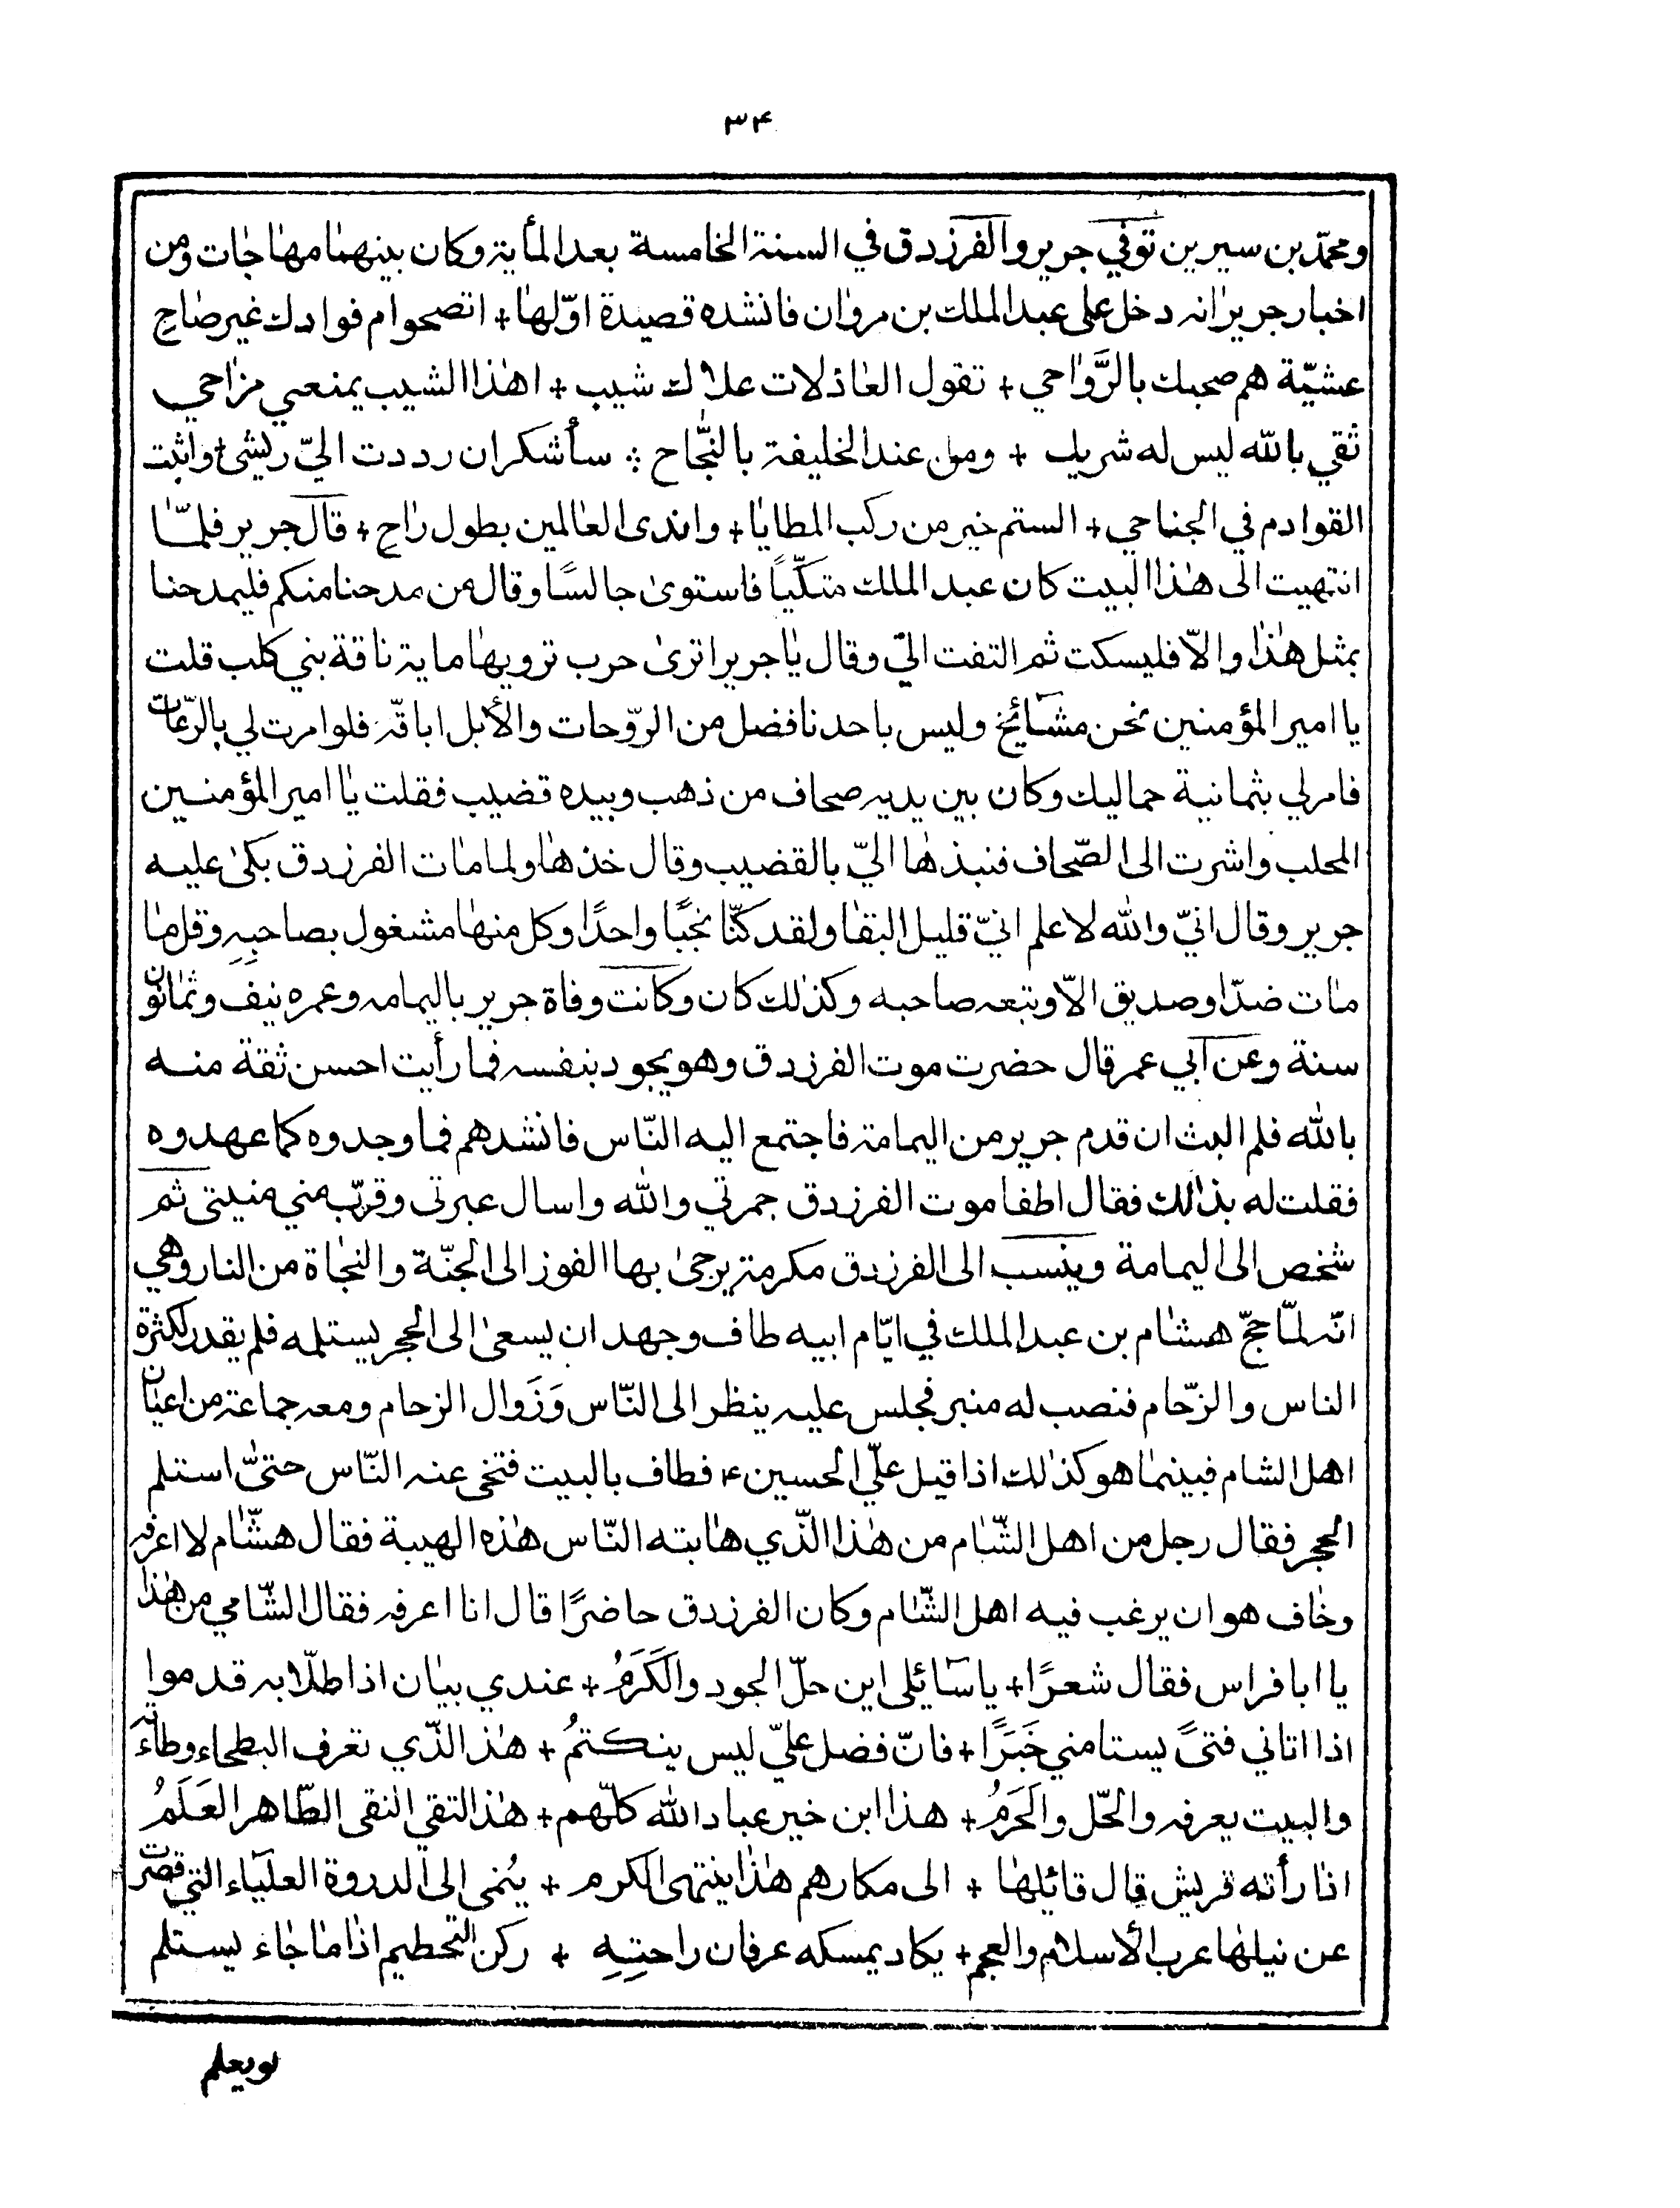 ۳۴
ومحمّد بن سيرين توفي جرير والفرزدق في السنة الخامسة بعد المأية وكان بينهما مهاجات ومن
اخبار جرير انه دخل على عبد الملك بن مروان فانشده قصيدة اوّلها + اتصحوام فوادك غير صاح
عشيّة هم صحبك بالرَّواحي + تقول العاذلات علاك شيب + اهذا الشيب يمنعني مزاحي
ثقي بالله ليس له شريك + ومن عند الخليفة بالنّجاح ؞ سأشكران رددت اليّ ريشئ + واثبت
القوادم في الجناحي + الستم خير من ركب المطايا + واندى العالمين بطول راح + قال جرير فلمّا
انتهيت الى هذا البيت كان عبد الملك متكّياً فاستوى جالسًا وقال من مدحنا منكم فليمدحنا
بمثل هذا والاّ فليسكت ثم التفت اليّ وقال يا جرير اترى حرب ترويها ماية ناقة بني كلب قلت
يا امير المؤمنين نحن مشايخ وليس باحدنا فضل من الروّحات والأبل اباقّه فلوامرت لي بالرّعات
فامرلي بثمانية حماليك وكان بين يديه صحاف من ذهب وبيده قضيب فقلت يا امير المؤمنين
المحلب واشرت الى الصّحاف فنبذها اليّ بالقضيب وقال خذها ولما مات الفرزدق بكى عليه
جرير وقال انيّ والله لاعلم انيّ قليل البقا ولقد كنّا نجبًا واحدًا وكل منها مشغول بصاحبِهِ وقل ما
مات ضدّ اوصديق الاّ وتبعه صاحبه وكذلك كان وكانت وفاة جرير باليمامه وعمره نيف وثمانون
سنة وعن ابي عمر قال حضرت موت الفرزدق وهو يجود بنفسه فما رأيت احسن ثقة منه
بالله فلم البث ان قدم جرير من اليمامة فاجتمع اليه النّاس فانشدهم فما وجدوه كما عهدوه
فقلت له بذالك فقال اطفا موت الفرزدق جمرتي والله واسال عبرتى وقرّب مني منيتى ثم
شخص الى اليمامة وينسب الى الفرزدق مكرمة يرجى بها الفوز الى الجنّة والنجاة من النار وهي
انّه لمّا حجّ هشام بن عبد الملك في ايّام ابيه طاف وجهد ان يسعى الى الحجر يستلمه فلم يقدر لكثرة
الناس والزّحام فنصب له منبر فجلس عليه ينظر الى النّاس وَزَوال الزحام ومعه جماعة من اعيان
اهل الشام فبينما هو كذلك اذا قيل عليّ الحسين ۴ فطاف بالبيت فتخى عنه النّاس حتىّ استلم
الحجر فقال رجل من اهل الشّام من هذا الذّي هابته النّاس هذه الهيبة فقال هشّام لا اعرفه
وخاف هو ان يرغب فيه اهل الشّام وكان الفرزدق حاضرًا قال انا اعرفه فقال الشّامي من هذا
يا ابا فراس فقال شعرًا + يا سائلى اين حلّ الجود والكَرَمُ + عندي بيان اذا طلّابه قدموا
اذا اتاني فتىً يستامني خَبَرًا + فانّ فضل عليّ ليس ينكتمُ + هذا الذّي تعرف البطحاء وطأته
والبيت يعرفه والحّل والحَرَمُ + هذا ابن خير عباد الله كلّهم + هذا التقي النقى الطّاهر العَلَمُ
اذا رأته قريش قال قائلها + الى مكارهم هذا ينتهى الكرم + يُنمى الى الدروة العلياء التي قصرت
عن نيلها عرب الأسلام والعجم + يكاد يمسكه عرفان راحتِهِ + ركن التحطيم اذا ما جاء يستلم
لويعلم